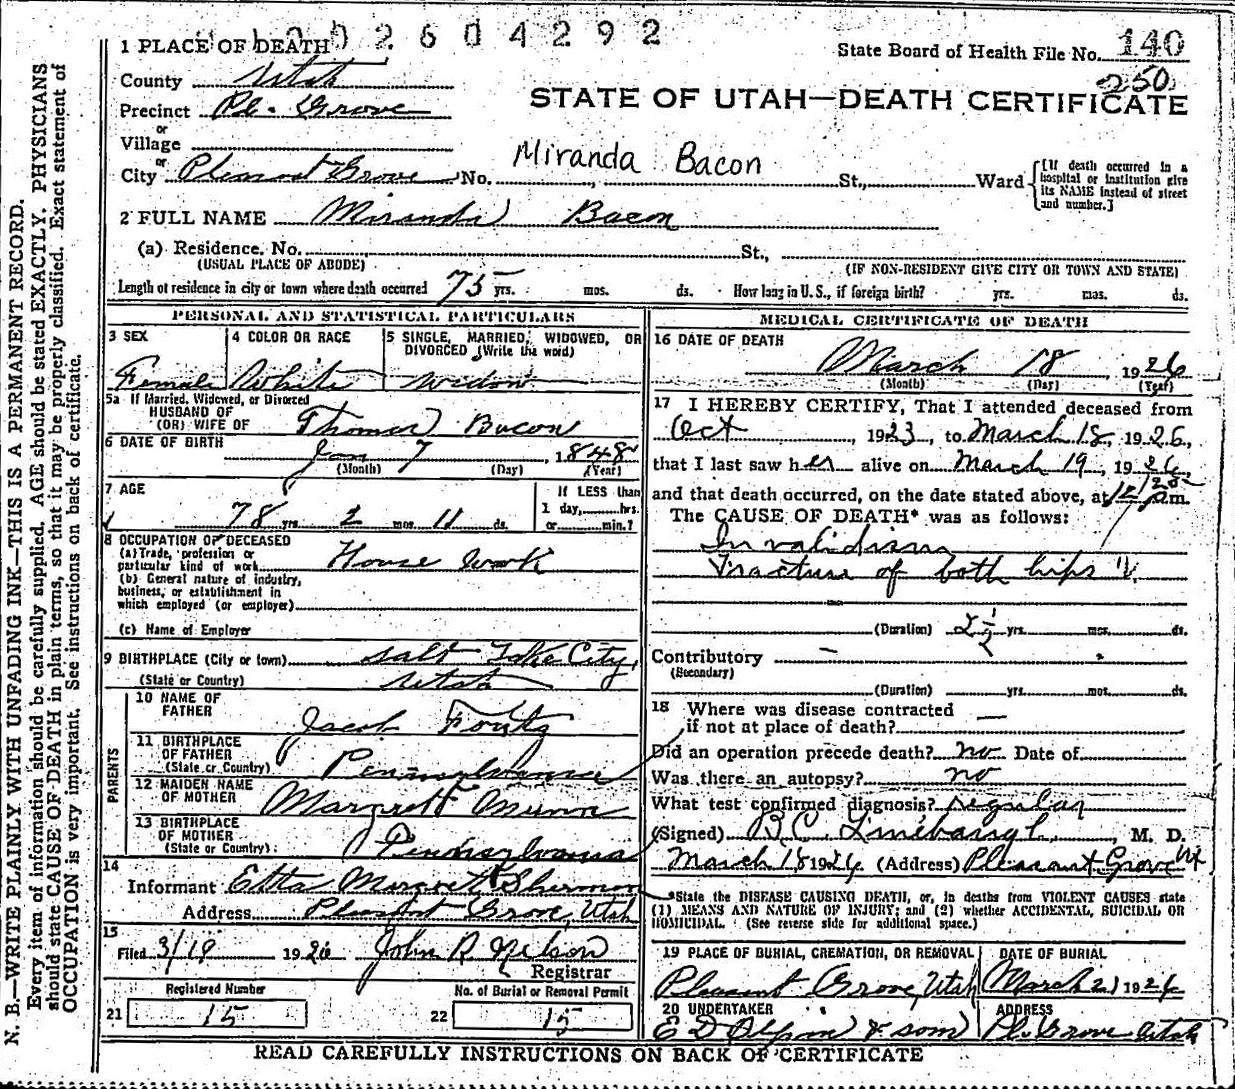 2604292
1 PLACE OF DEATH
State Board of Health File No. 140
250
County Utah
Precinct Pl. Grove
STATE OF UTAH—DEATH CERTIFICATE
or
Village
or
Miranda Bacon
City Pleasant Grove No. St., Ward
[If death occurred in a hospital or institution give its NAME instead of street and number.]
2 FULL NAME Miranda Bacon
(a) Residence. No. St.,
(USUAL PLACE OF ABODE) (IF NON-RESIDENT GIVE CITY OR TOWN AND STATE)
Length of residence in city or town where death occurred 75 yrs. mos. ds. How long in U. S., if foreign birth? yrs. mos. ds.
PERSONAL AND STATISTICAL PARTICULARS
3 SEX
Female
4 COLOR OR RACE
White
5 SINGLE, MARRIED, WIDOWED, OR
DIVORCED (Write the word)
Widow
5a If Married, Widowed, or Divorced
HUSBAND OF
(OR) WIFE OF Thomas Bacon
6 DATE OF BIRTH
Jan 7, 1848
(Month) (Day) (Year)
7 AGE
78 yrs. 2 mos. 11 ds.
If LESS than
1 day, hrs.
or min.?
8 OCCUPATION OF DECEASED
(a) Trade, profession or
particular kind of work House work
(b) General nature of industry,
business, or establishment in
which employed (or employer)
(c) Name of Employer
9 BIRTHPLACE (City or town) Salt Lake City,
(State or Country) Utah
PARENTS
10 NAME OF
FATHER Jacob Foutz
11 BIRTHPLACE
OF FATHER
(State or Country) Pennsylvania
12 MAIDEN NAME
OF MOTHER Margrett Munn
13 BIRTHPLACE
OF MOTHER
(State or Country) Pennsylvania
14
Informant Etta Margrett Sherman
Address Pleasant Grove, Utah
15
Filed 3/19 1926 John R Nelson
Registrar
Registered Number No. of Burial or Removal Permit
21 15 22 15
MEDICAL CERTIFICATE OF DEATH
16 DATE OF DEATH
March 18, 1926
(Month) (Day) (Year)
17 I HEREBY CERTIFY, That I attended deceased from
Oct, 1923, to March 18, 1926,
that I last saw her alive on March 19, 1926,
and that death occurred, on the date stated above, at m.
The CAUSE OF DEATH* was as follows:
Invalidism
Fracture of both hips
(Duration) 2½ yrs. mos. ds.
Contributory —
(Secondary)
(Duration) yrs. mos. ds.
18 Where was disease contracted
if not at place of death? —
Did an operation precede death? no Date of
Was there an autopsy? no
What test confirmed diagnosis? regular
(Signed) B C Linebaugh, M. D.
March 18 1926 (Address) Pleasant Grove Ut
*State the DISEASE CAUSING DEATH, or, in deaths from VIOLENT CAUSES state
(1) MEANS AND NATURE OF INJURY; and (2) whether ACCIDENTAL, SUICIDAL OR
HOMICIDAL. (See reverse side for additional space.)
19 PLACE OF BURIAL, CREMATION, OR REMOVAL
Pleasant Grove, Utah
DATE OF BURIAL
March 21 1926
20 UNDERTAKER
E D Olpin & sons
ADDRESS
Pl. Grove Utah
READ CAREFULLY INSTRUCTIONS ON BACK OF CERTIFICATE
N. B.—WRITE PLAINLY WITH UNFADING INK—THIS IS A PERMANENT RECORD.
Every item of information should be carefully supplied. AGE should be stated EXACTLY. PHYSICIANS
should state CAUSE OF DEATH in plain terms, so that it may be properly classified. Exact statement of
OCCUPATION is very important. See instructions on back of certificate.